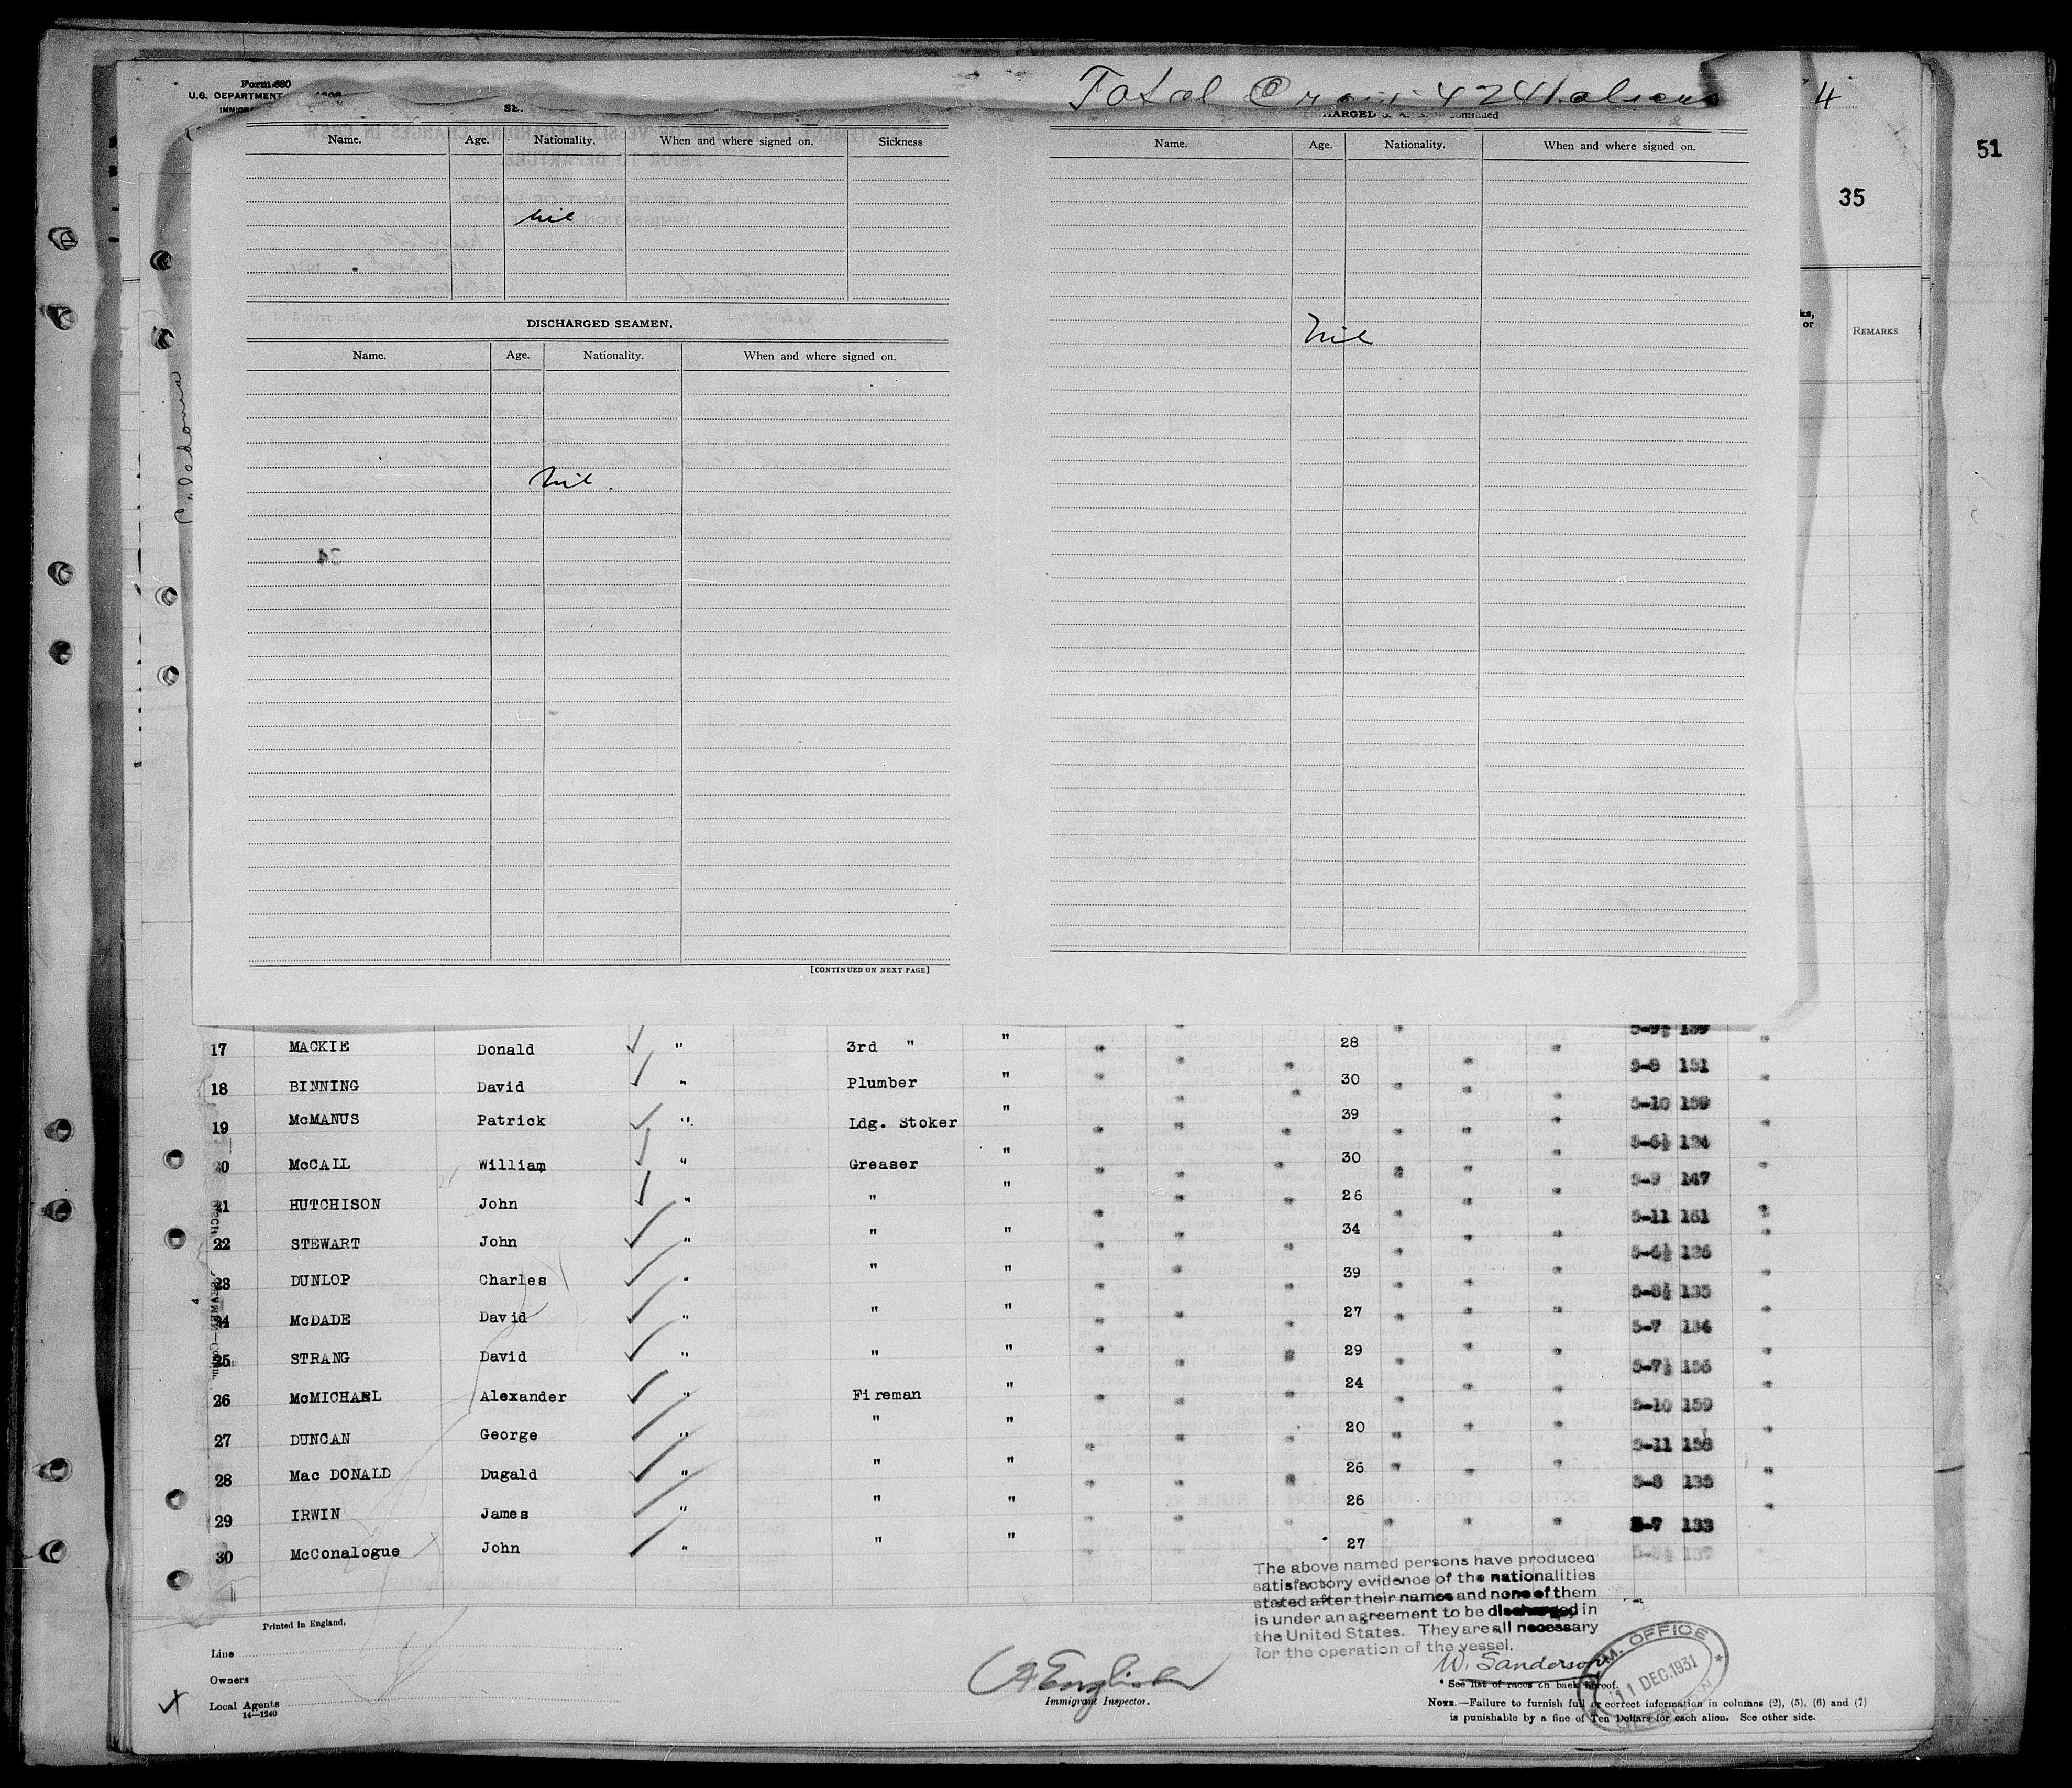 Form 680
U.S. DEPARTMENT
Total Crew 424
4
51
35
CHARGED
Continued
Name. Age. Nationality. When and where signed on. Sickness
nil
DISCHARGED SEAMEN.
Name. Age. Nationality. When and where signed on.
nil.
34
[CONTINUED ON NEXT PAGE]
Name. Age. Nationality. When and where signed on.
nil
or REMARKS
17 MACKIE Donald " 3rd " " 28
18 BINNING David " Plumber " 30 5-8 151
19 McMANUS Patrick " Ldg. Stoker " 39 5-10 159
20 McCALL William " Greaser " 30 5-6½ 124
21 HUTCHISON John " " " 26 5-9 147
22 STEWART John " " " 34 5-11 161
23 DUNLOP Charles " " " 39 5-6½ 126
24 McDADE David " " " 27 5-8½ 135
25 STRANG David " " " 29 5-7 134
26 McMICHAEL Alexander " Fireman " 24 5-7½ 156
27 DUNCAN George " " " 20 5-10 159
28 Mac DONALD Dugald " " " 26 5-11 158
29 IRWIN James " " " 26 5-8 135
30 McConalogue John " " " 27 5-7 133
The above named persons have produced
satisfactory evidence of the nationalities
stated after their names and none of them
is under an agreement to be discharged in
the United States. They are all necessary
for the operation of the vessel.
Printed in England.
Line
Owners
Local Agents
14—1240
Immigrant Inspector.
W. Sanderson
IMM. OFFICE
11 DEC. 1931
* See list of races on back hereof.
NOTE.—Failure to furnish full or correct information in columns (2), (5), (6) and (7)
is punishable by a fine of Ten Dollars for each alien. See other side.